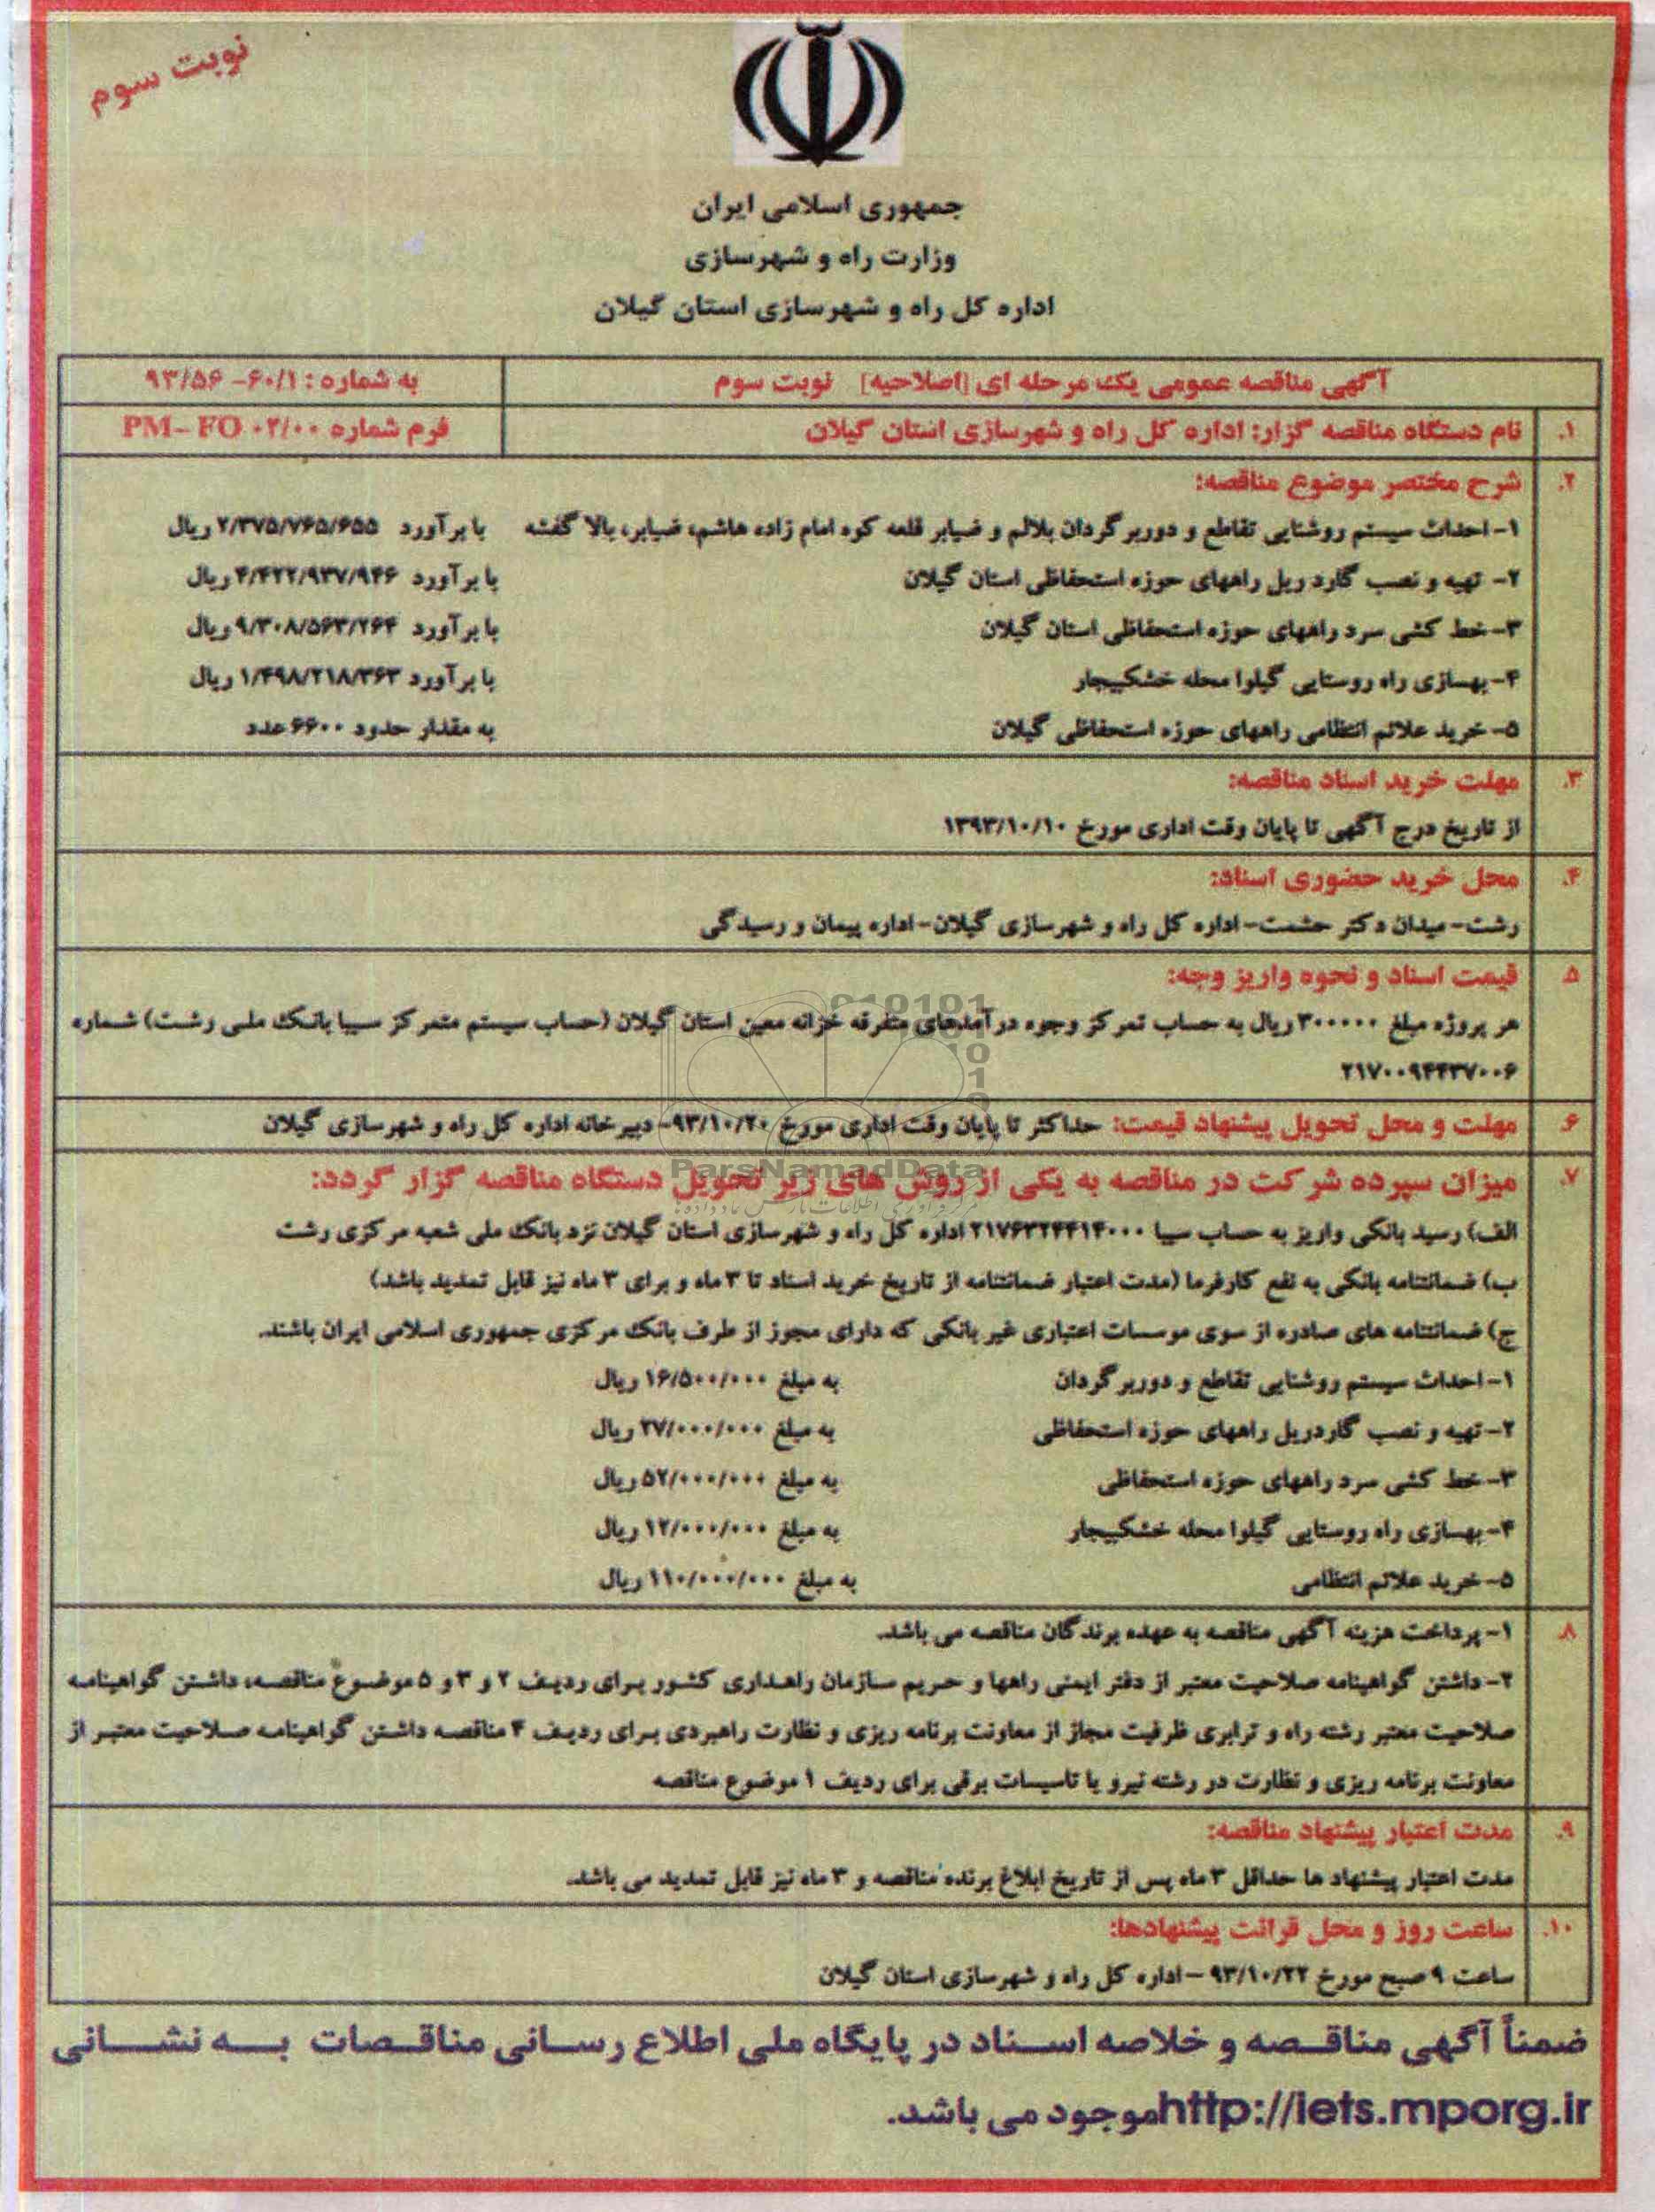 نوبت سوم
جمهوری اسلامی ایران
وزارت راه و شهرسازی
اداره کل راه و شهرسازی استان گیلان
آگهی مناقصه عمومی یک مرحله ای [اصلاحیه] نوبت سوم
به شماره : ۶۰/۱- ۹۳/۵۶
۱. نام دستگاه مناقصه گزار: اداره کل راه و شهرسازی استان گیلان
فرم شماره ۰۲/۰۰ PM- FO
۲. شرح مختصر موضوع مناقصه:
۱- احداث سیستم روشنایی تقاطع و دوربرگردان بلالم و ضیابر قلعه کوه امام زاده هاشم، ضیابر، بالا گفشه با برآورد ۲/۳۷۵/۷۶۵/۶۵۵ ریال
۲- تهیه و نصب گارد ریل راههای حوزه استحفاظی استان گیلان با برآورد ۴/۴۲۲/۹۳۷/۹۴۶ ریال
۳- خط کشی سرد راههای حوزه استحفاظی استان گیلان با برآورد ۹/۳۰۸/۵۶۳/۲۶۴ ریال
۴- بهسازی راه روستایی گیلوا محله خشکبیجار با برآورد ۱/۴۹۸/۲۱۸/۳۶۳ ریال
۵- خرید علائم انتظامی راههای حوزه استحفاظی گیلان به مقدار حدود ۶۶۰۰ عدد
۳. مهلت خرید اسناد مناقصه:
از تاریخ درج آگهی تا پایان وقت اداری مورخ ۱۳۹۳/۱۰/۱۰
۴. محل خرید حضوری اسناد:
رشت- میدان دکتر حشمت- اداره کل راه و شهرسازی گیلان- اداره پیمان و رسیدگی
۵ قیمت اسناد و نحوه واریز وجه:
هر پروژه مبلغ ۳۰۰۰۰۰ ریال به حساب تمرکز وجوه درآمدهای متفرقه خزانه معین استان گیلان (حساب سیستم متمرکز سیبا بانک ملی رشت) شماره
۲۱۷۰۰۹۴۴۳۷۰۰۶
۶ مهلت و محل تحویل پیشنهاد قیمت: حداکثر تا پایان وقت اداری مورخ ۹۳/۱۰/۲۰- دبیرخانه اداره کل راه و شهرسازی گیلان
ParsNamadData
۷. میزان سپرده شرکت در مناقصه به یکی از روش های زیر تحویل دستگاه مناقصه گزار گردد:
الف) رسید بانکی واریز به حساب سیبا ۲۱۷۶۳۲۴۴۱۴۰۰۰ اداره کل راه و شهرسازی استان گیلان نزد بانک ملی شعبه مرکزی رشت
ب) ضمانتنامه بانکی به نفع کارفرما (مدت اعتبار ضمانتنامه از تاریخ خرید اسناد تا ۳ ماه و برای ۳ ماه نیز قابل تمدید باشد)
ج) ضمانتنامه های صادره از سوی موسسات اعتباری غیر بانکی که دارای مجوز از طرف بانک مرکزی جمهوری اسلامی ایران باشند.
۱- احداث سیستم روشنایی تقاطع و دوربرگردان به مبلغ ۱۶/۵۰۰/۰۰۰ ریال
۲- تهیه و نصب گاردریل راههای حوزه استحفاظی به مبلغ ۲۷/۰۰۰/۰۰۰ ریال
۳- خط کشی سرد راههای حوزه استحفاظی به مبلغ ۵۲/۰۰۰/۰۰۰ ریال
۴- بهسازی راه روستایی گیلوا محله خشکبیجار به مبلغ ۱۲/۰۰۰/۰۰۰ ریال
۵- خرید علائم انتظامی به مبلغ ۱۱۰/۰۰۰/۰۰۰ ریال
۸. ۱- پرداخت هزینه آگهی مناقصه به عهده برندگان مناقصه می باشد.
۲- داشتن گواهینامه صلاحیت معتبر از دفتر ایمنی راهها و حریم سازمان راهداری کشور برای ردیف ۲ و ۳ و ۵ موضوع مناقصه، داشتن گواهینامه
صلاحیت معتبر رشته راه و ترابری ظرفیت مجاز از معاونت برنامه ریزی و نظارت راهبردی برای ردیف ۴ مناقصه داشتن گواهینامه صلاحیت معتبر از
معاونت برنامه ریزی و نظارت در رشته نیرو یا تاسیسات برقی برای ردیف ۱ موضوع مناقصه
۹. مدت اعتبار پیشنهاد مناقصه:
مدت اعتبار پیشنهاد ها حداقل ۳ ماه پس از تاریخ ابلاغ برنده مناقصه و ۳ ماه نیز قابل تمدید می باشد.
۱۰. ساعت روز و محل قرائت پیشنهادها:
ساعت ۹ صبح مورخ ۹۳/۱۰/۲۲ - اداره کل راه و شهرسازی استان گیلان
ضمناً آگهی مناقصه و خلاصه اسناد در پایگاه ملی اطلاع رسانی مناقصات به نشانی
http://iets.mporg.ir موجود می باشد.